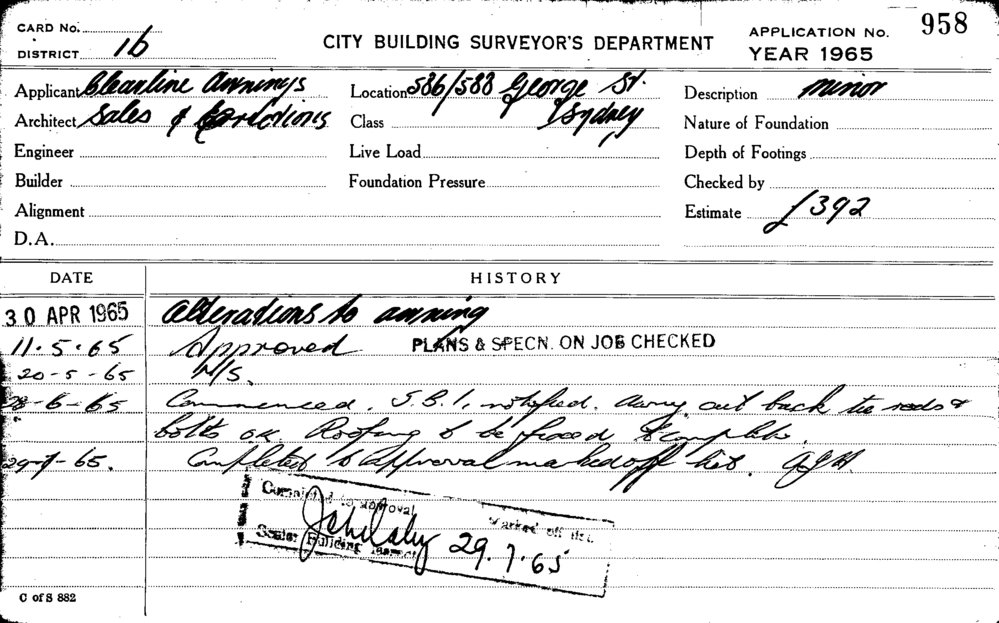 CARD No. APPLICATION No. 958
DISTRICT 16 CITY BUILDING SURVEYOR'S DEPARTMENT YEAR 1965
Applicant Clearline Awnings Location 586/588 George St. Description minor
Architect Sales & Erections Class Sydney Nature of Foundation
Engineer Live Load Depth of Footings
Builder Foundation Pressure Checked by
Alignment Estimate £392
D.A.
DATE HISTORY
30 APR 1965 Alterations to awning
11.5.65 Approved PLANS & SPECN. ON JOB CHECKED
20-5-65 N/S.
28-6-65 Commenced. S.B.I. notified. Awng cut back tie rods &
bolts OK. Roofing to be fixed & complete.
29-7-65. Completed to approval marked off list.
Completed to approval Marked off list.
Senior Building Inspector 29.7.65
C of S 882